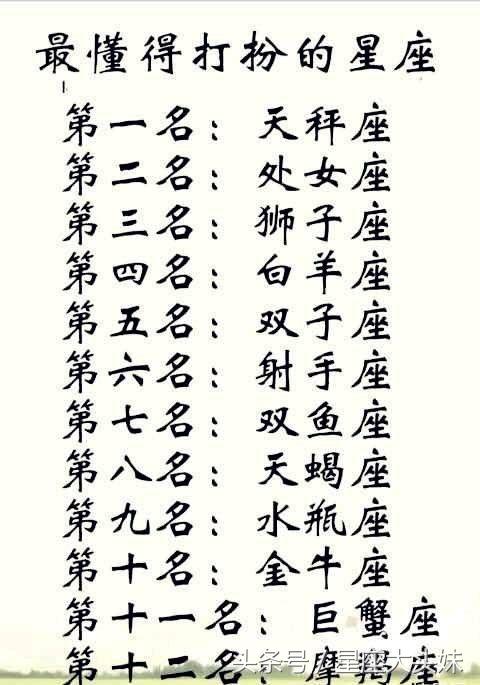 最懂得打扮的星座
第一名：天秤座
第二名：处女座
第三名：狮子座
第四名：白羊座
第五名：双子座
第六名：射手座
第七名：双鱼座
第八名：天蝎座
第九名：水瓶座
第十名：金牛座
第十一名：巨蟹座
第十二名：摩羯座
头条号/星座大头妹